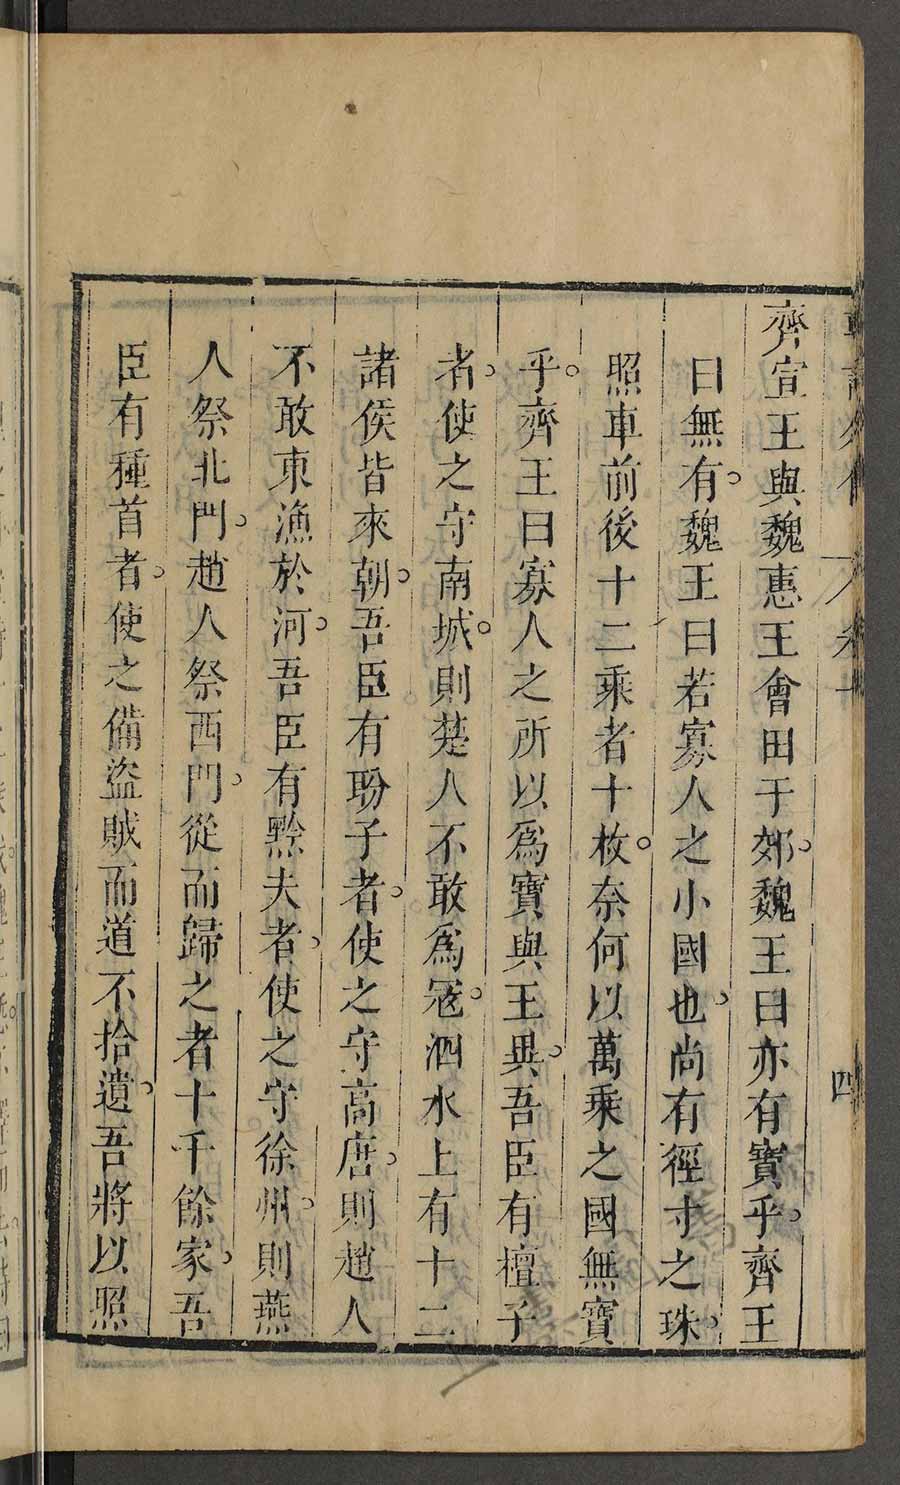 韓詩外傳 卷十 四
齊宣王與魏惠王會田于郊魏王曰亦有寶乎齊王
曰無有魏王曰若寡人之小國也尚有徑寸之珠
照車前後十二乘者十枚奈何以萬乘之國無寶
乎齊王曰寡人之所以爲寶與王異吾臣有檀子
者使之守南城則楚人不敢爲寇泗水上有十二
諸侯皆來朝吾臣有盼子者使之守高唐則趙人
不敢東漁於河吾臣有黔夫者使之守徐州則燕
人祭北門趙人祭西門從而歸之者十千餘家吾
臣有種首者使之備盜賊而道不拾遺吾將以照